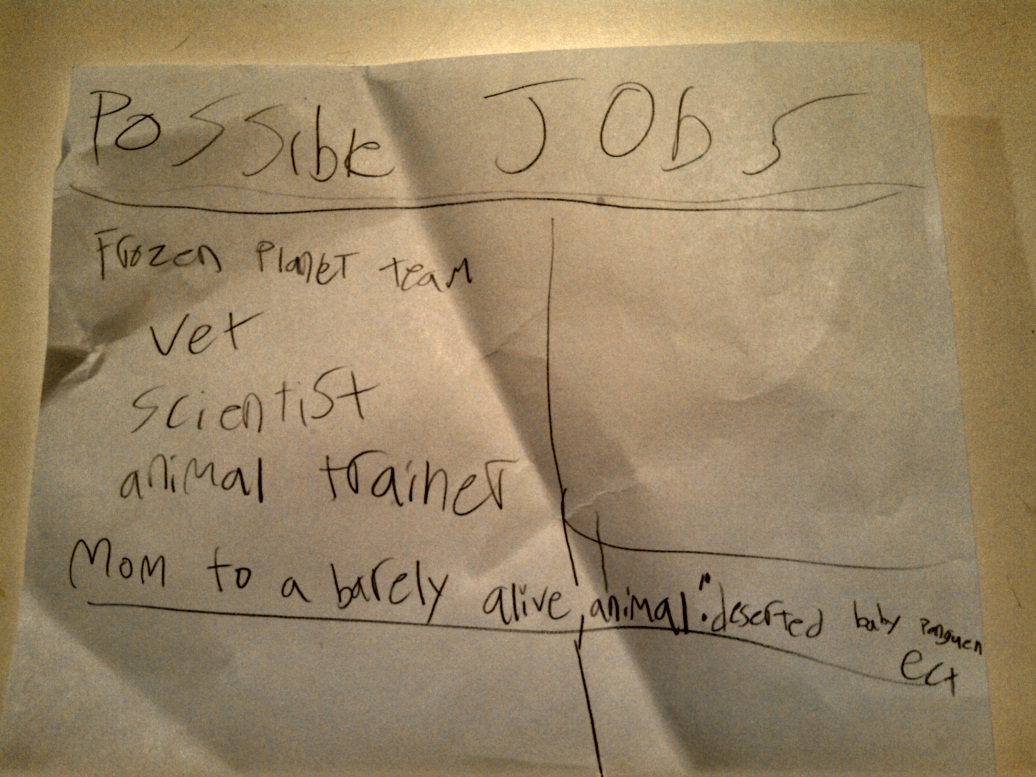 Possible JObs
Frozen Planet team
vet
scientist
animal trainer
Mom to a barely alive animal". deserted baby Penguen
ect